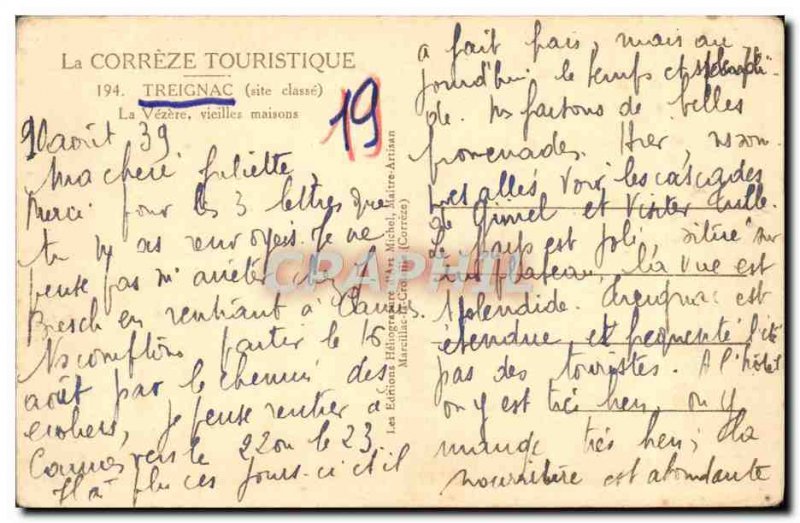 La CORRÈZE TOURISTIQUE
194. TREIGNAC (site classé)
La Vézère, vieilles maisons
19
août 39
Ma chère Juliette,
Merci pour les 3 lettres que
tu m'y as renvoyées. Je ne
pense pas m'arrêter
en rentrant à
Ns comptons partir le 16
août par le chemin des
écoliers, je pense rentrer à
vers le 22 ou le 23.
Il a plu ces jours-ci et il
Les Editions Héliogravure d'Art Michel, Maître-Artisan
Marcillac-la-Croisille (Corrèze)
CRAPHIL
a fait frais, mais au
jourd'hui le temps est splendi
de. Ns faisons de belles
promenades. Hier, ns som
mes allés voir les cascades
de Gimel et visiter Tulle.
Le pays est joli, situé sur
un plateau, la vue est
splendide. Treignac est
étendue et fréquenté l'été
par des touristes. A l'hôtel
on y est très bien, on y
mange très bien; la
nourriture est abondante